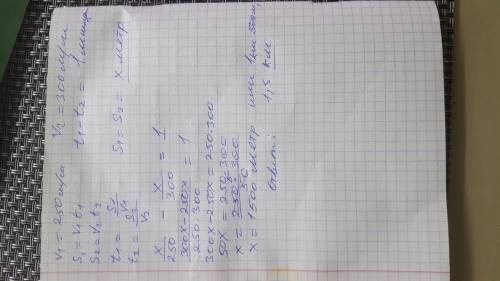 V1 = 250 м/мин V2 = 300 м/мин
S1 = V1 t1 t1 - t2 = 1 мин
S2 = V2 t2
t1 = S1/V1 S1 = S2 = x метр
t2 = S2/V2
x/250 - x/300 = 1
300x-250x/250·300 = 1
300x-250x = 250·300
50x = 250·300
x = 250·300/50
x = 1500 метр или 1км 500м,
ответ: 1,5 км